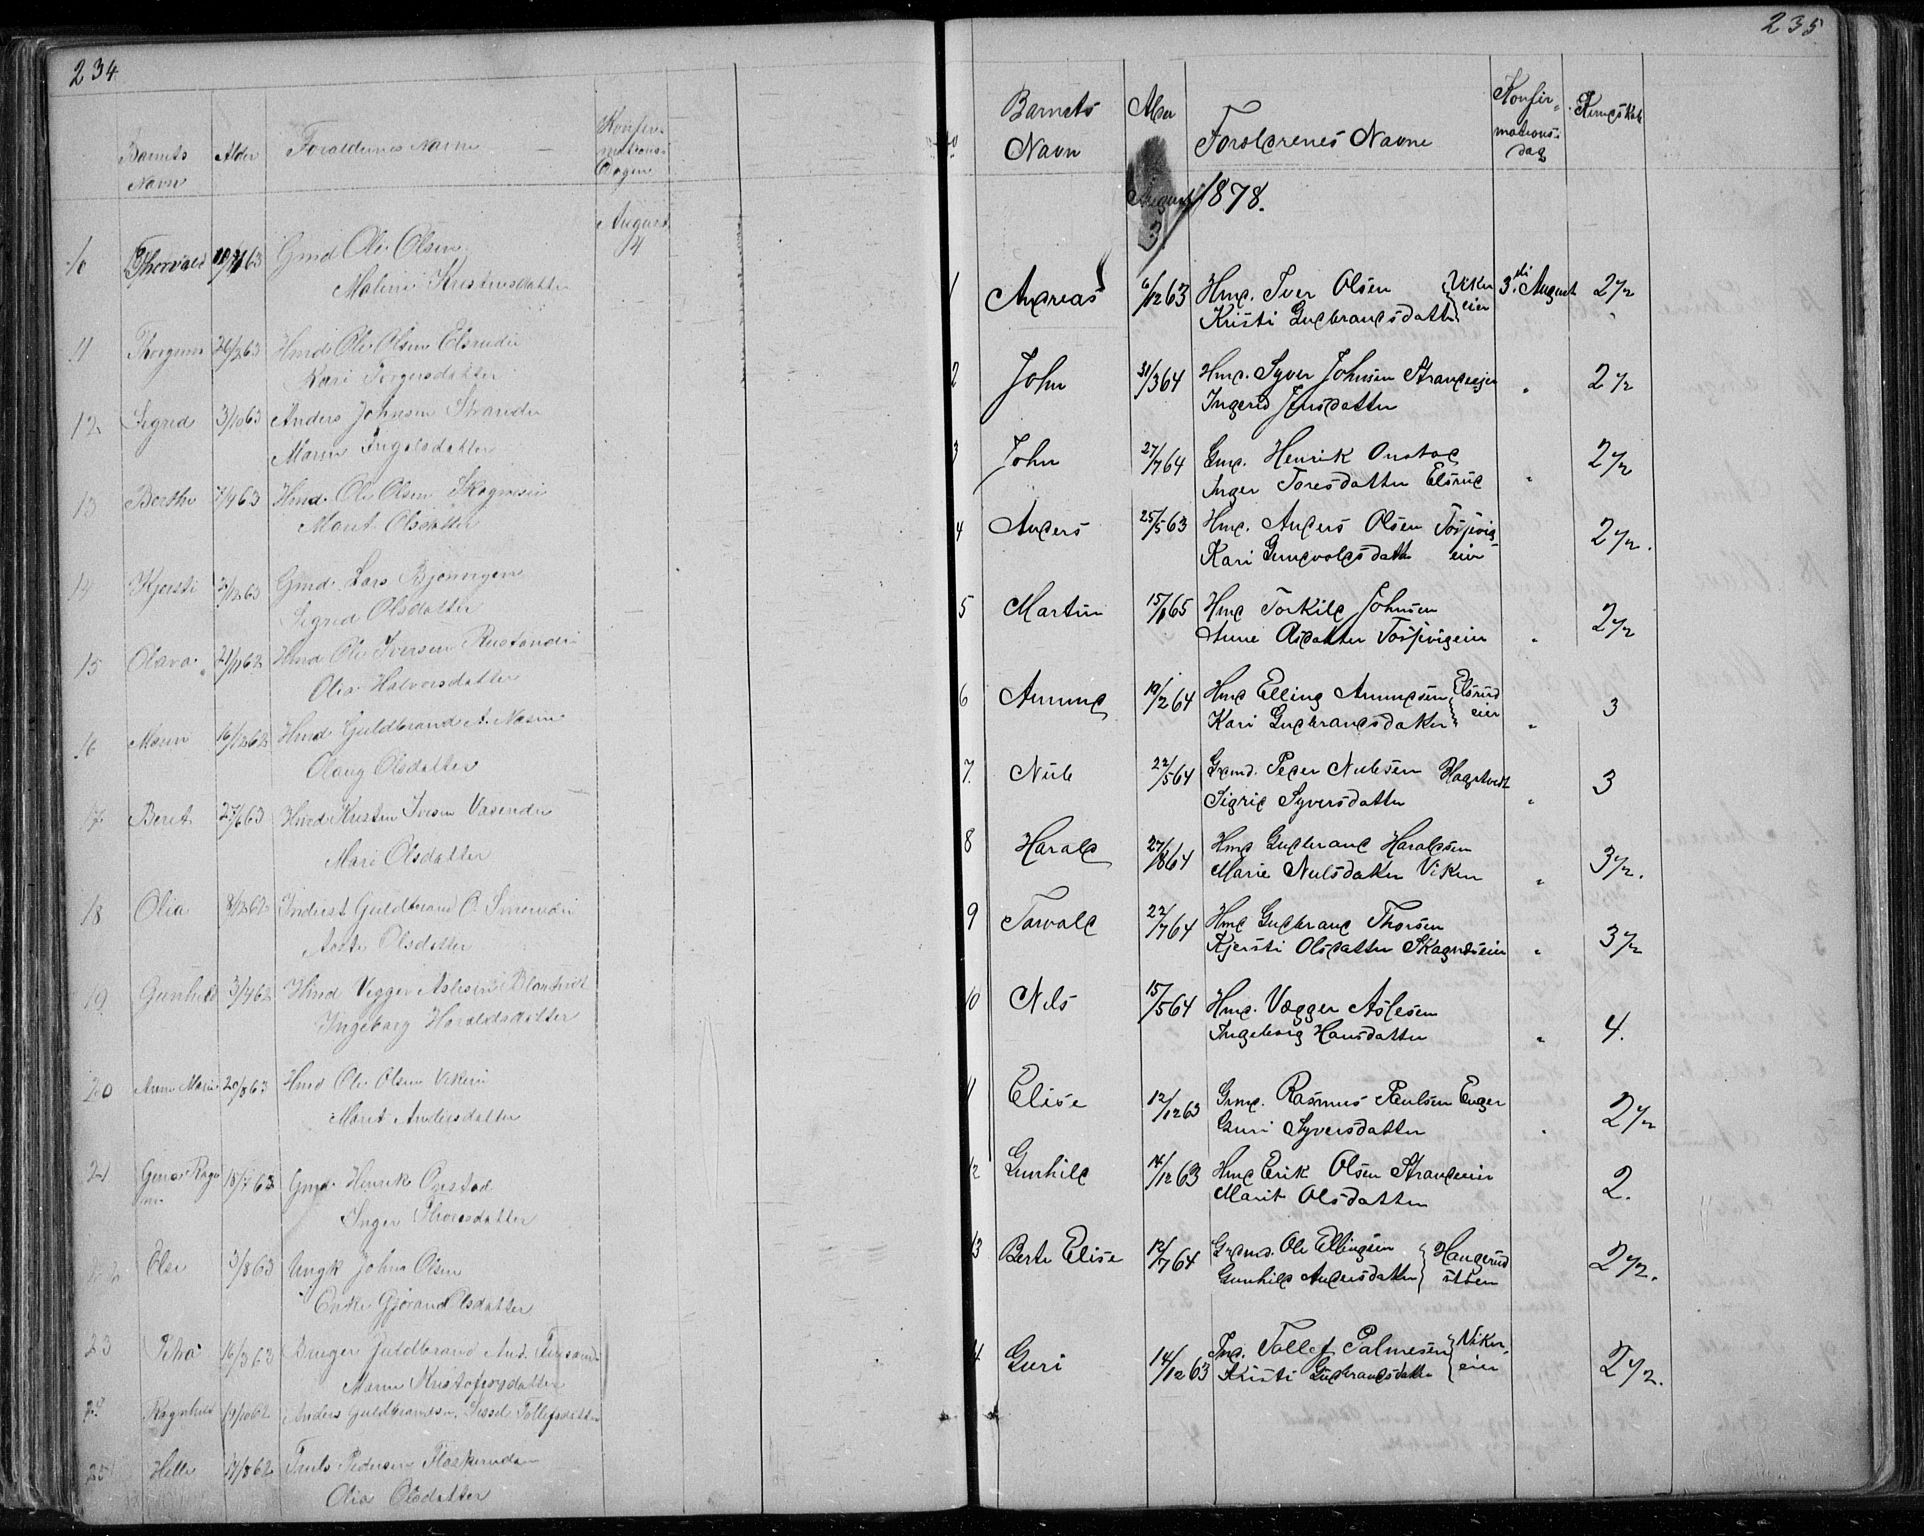 234
Barnets Navn
Alder
Forældrenes Navne
Konfirmations-Dagen
August
4
Thorvald 63 Gmd Ole Olsen
Maline Kristensdatter
11 26/2 63 Hmd Ole Olsen Elsrudei
Kari Torgersdatter
12 Sigrid 3/10 63 Anders Johnsen
Maren Ingolsdatter
13 Berthe 7/4 63 Hmd. Ole Olsen
Marit Olsdatter
14 Kjersti /12 63 Gmd. Lars
Sigrid Olsdatter
15 Olava 21/1 62 Hmd Ole Iversen
Olia Halvorsdatter
16 Maren 16/12 62 Hmd Guldbrand A.
Olaug Olsdatter
17 Beret 27/6 63 Hmd Kristen Iversen
Mari Olsdatter
18 Olia 8/12 62 Inderst Guldbrand O.
Olsdatter
19 Gunhild 3/4 62 Hmd Vegger Aslesen
Ingeborg Haraldsdatter
20 Anne Marie 20/8 63 Hmd Ole Olsen Vikerei
Marit Andersdatter
21 18/7 62 Gmd. Henrik Onstad
Inger Thoresdatter
Else 3/8 63 Ungk Johns Olsen
Enke Gjøran Olsdatter
23 Petra 16/3 63 Bruger Guldbrand And.
Maren Kristofersdatter
Ragnhild 19/10 62 Anders Guldbrandsen, Sissel Tollefsdatter
25 Helle 17/8 62 Pauls Pedersen
Olia Olsdatter
235
Barnets Navn
Alder
Forældrenes Navne
Konfir-
mations-
dag
Kundskab
August 1878.
3
1 Andreas 6/12 63 Hmd. Iver Olsen Viker 3die August 2 1/2
Kristi Gudbrandsdatter eier
2 John 31/3 64 Hmd. Syver Johnsen Strandeejer " 2 1/2
Ingerid Jensdatter
3 John 27/7 64 Gmd. Henrik Onstad 2 1/2
Inger Toresdatter Elsrud "
4 Anders 25/5 63 Hmd. Anders Olsen Tosjvig- 2 1/2.
Kari Gundvoldsdatt eier
5 Martin 15/ 65 Hmd Torkild Johnsen 2 1/2
Anne Olsdatter Tosjvigeier "
6 Amund 19/2 64 Hmd Elling Amundsen Elsrud 3
Kari Gudbrandsdatter eier "
7. Niels 22/5 64 Grdmd. Peder Nielsen Hagatvedt 3
Sigrid Syversdatter "
8 Harald 27/8 64 Hmd Gudbrand Haraldsen 3 1/2.
Marie Nielsdatter Viker "
9 Torvald 22/7 64 Hmd Gudbrand Thorsen 3 1/2
Kjersti Olsdatter Skagnæseier "
10 Nils 15/5 64 Hmd. Vægger Aslesen 4.
Ingeborg Hansdatter "
11 Elise 12/12 63 Grmd. Rasmus Paulsen Enger 2 1/2
Guri Syversdatter "
12 Gunhild 14/12 63 Hmd Erik Olsen Strandeeier 2.
Marit Olsdatter
13 Berte Elise 12/7 64 Grdmd. Ole Ellingsen Haugerud 2 1/2.
Gunhild Andersdatter støen
14 Guri 14/12 63 Ind. Tollef Palmesen Viker- 2 1/2.
Kristi Gudbrandsdatter eier